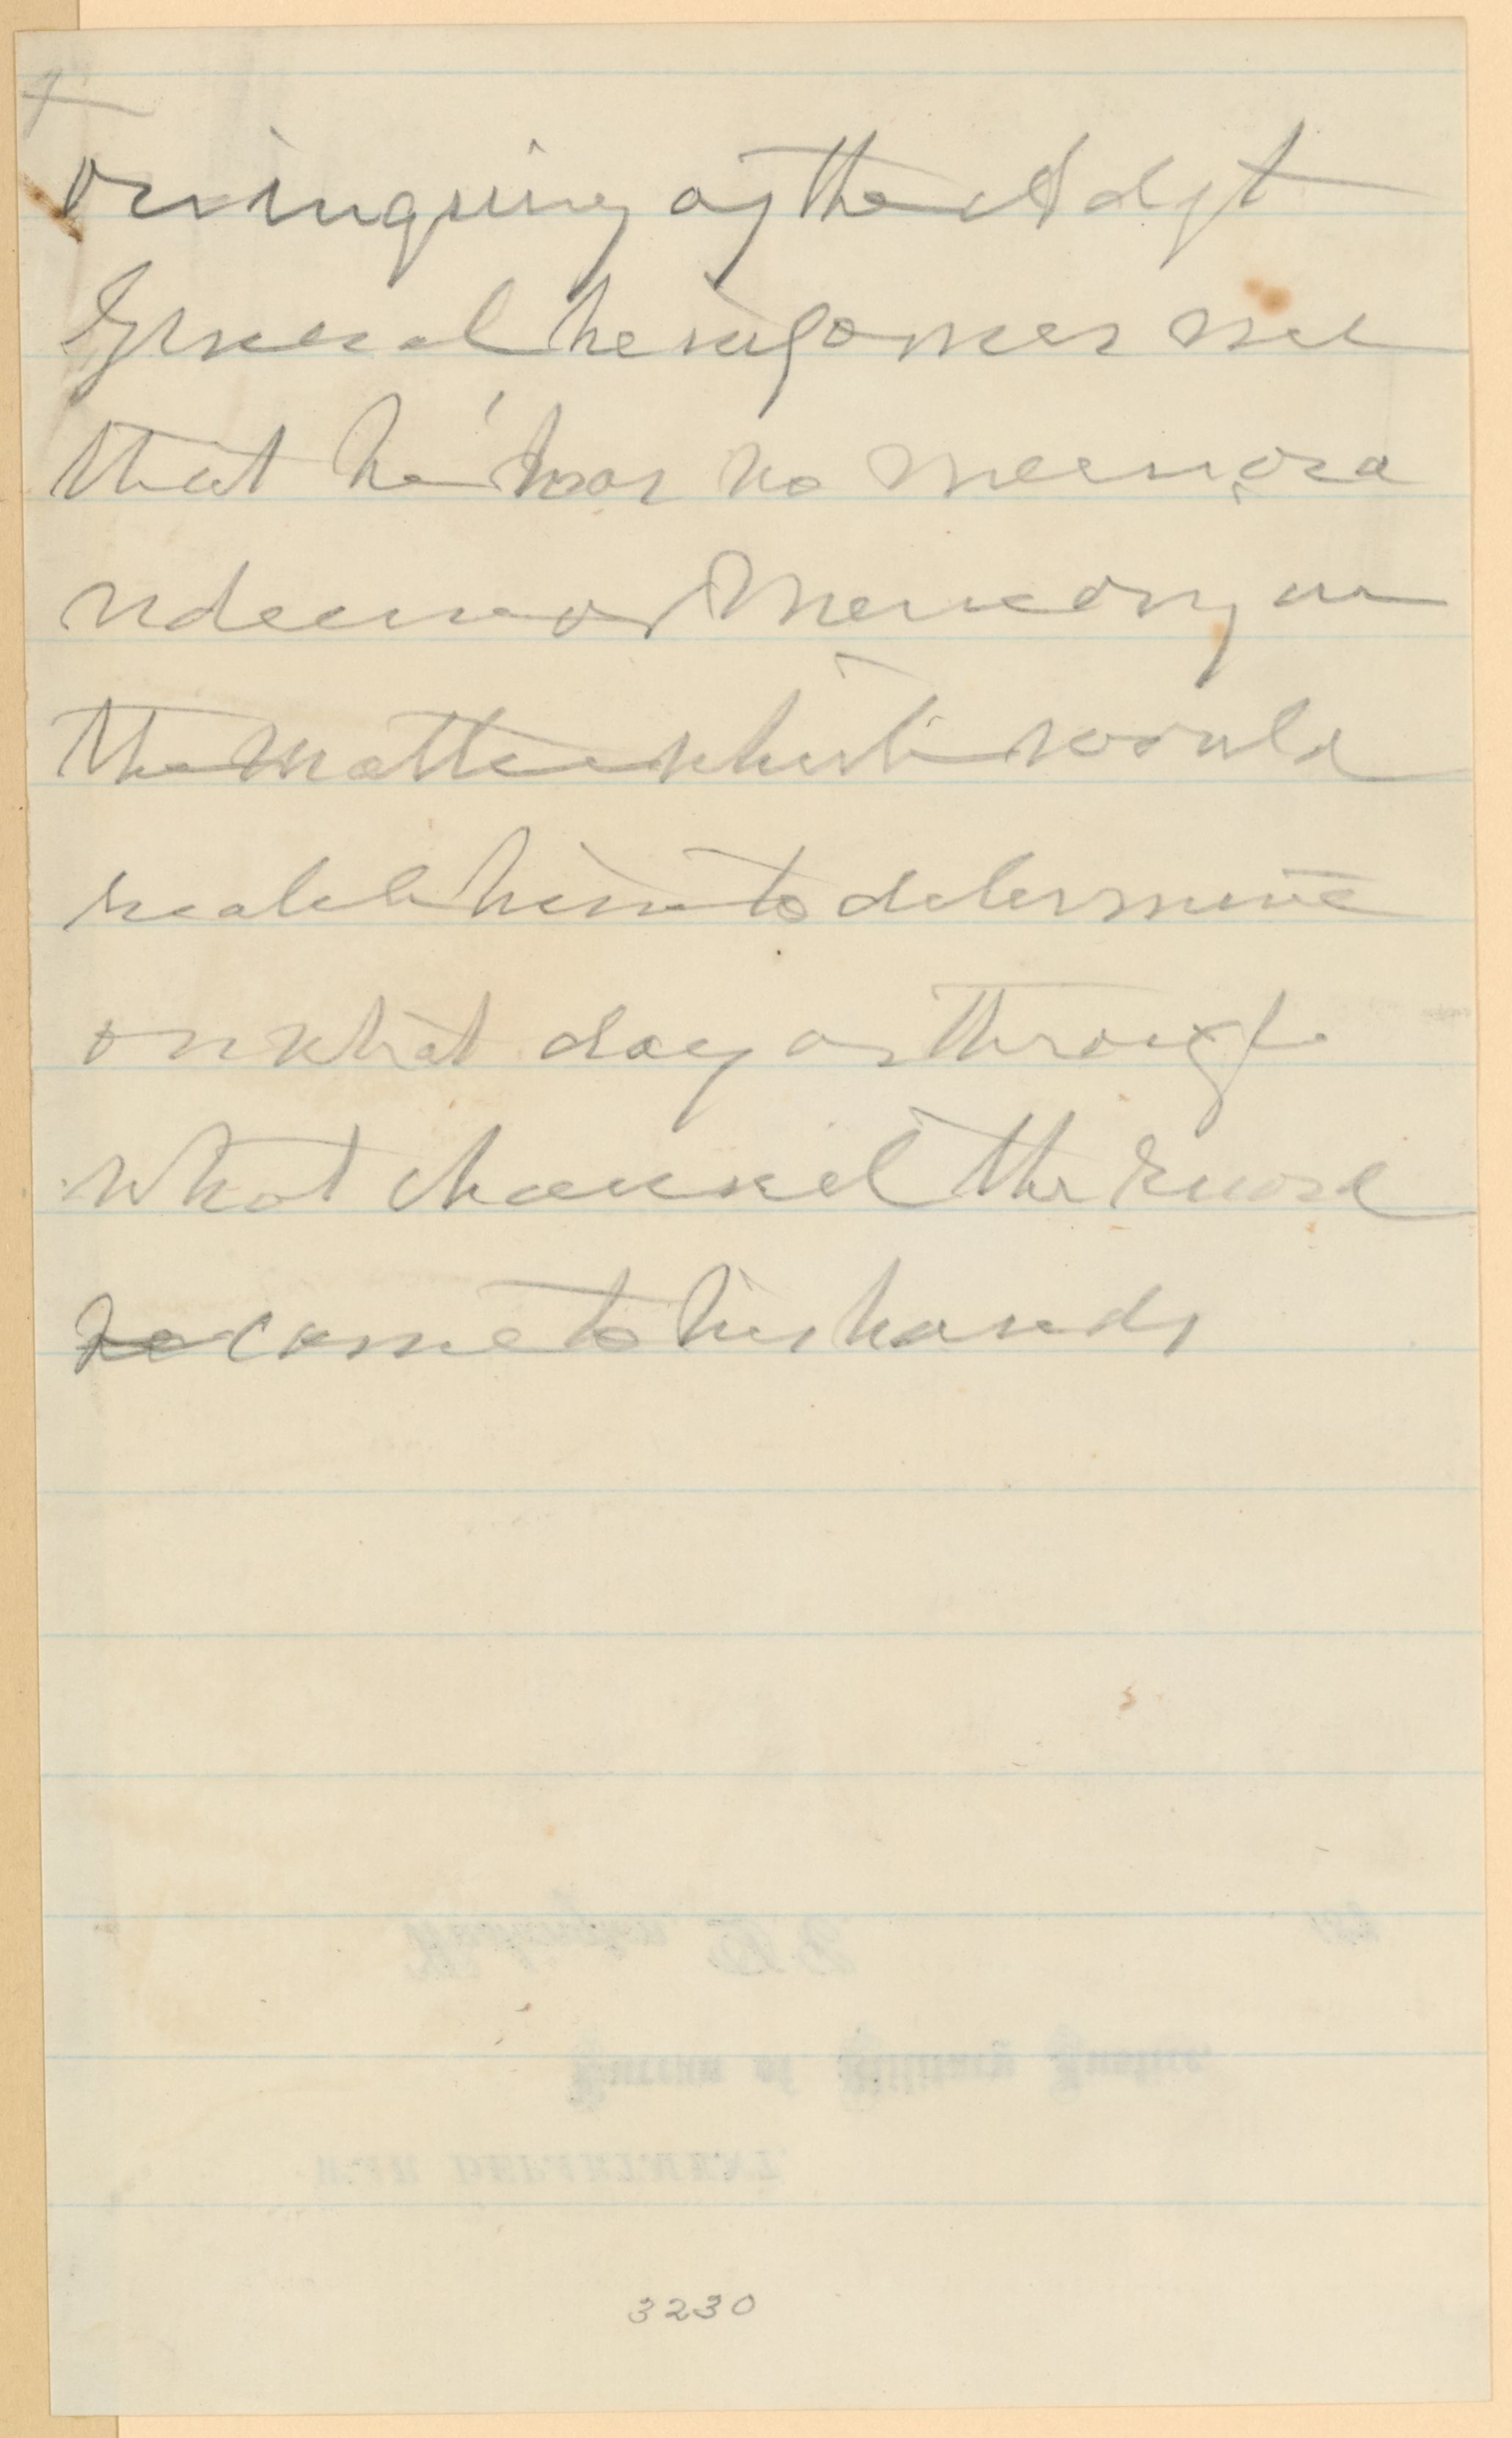 on inquiring of the Adjt
General he informs me
that he has no memora
ndum or memory on
the matter which would
enable him to determine
on what day or through
what channel the
come to his hands
3230